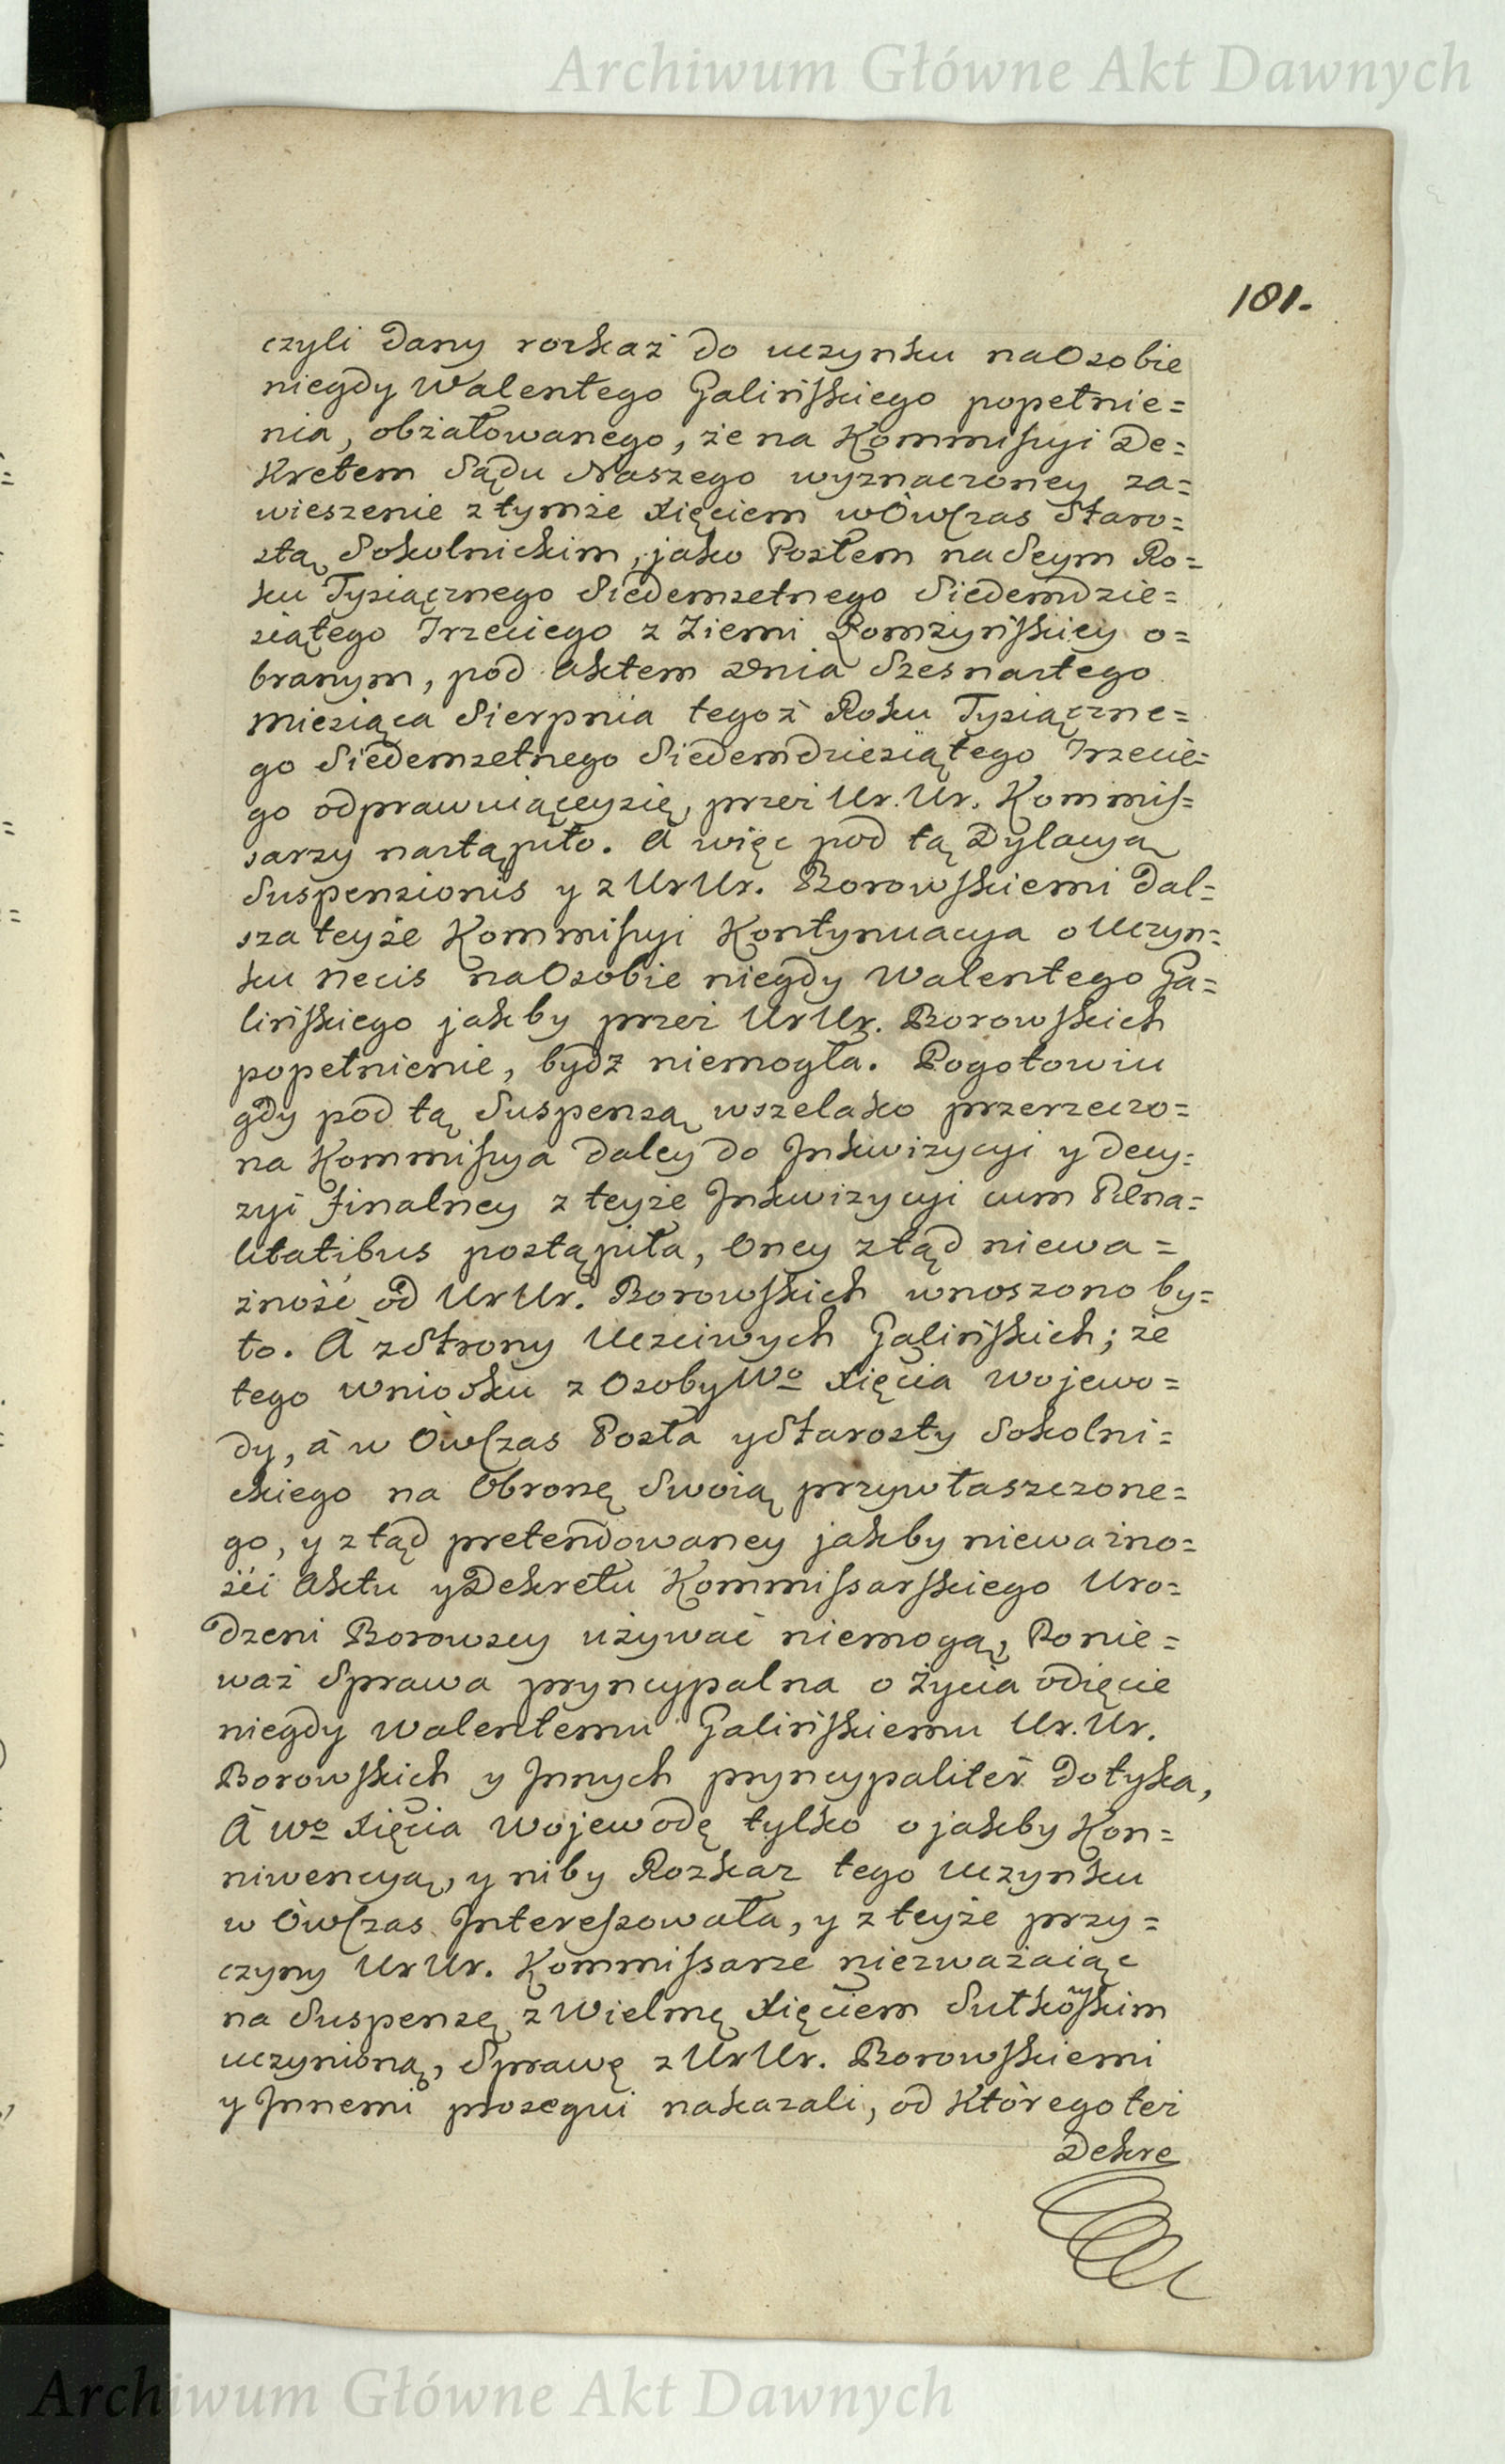 Archiwum Główne Akt Dawnych
181.
czyli dany rozkaz do uczynku na Osobie
niegdy Walentego Galińskiego popełnie=
nia, obżałowanego, że na Kommissyi De=
kretem Sądu Naszego wyznaczoney za=
wieszenie z tymże Xięciem wÓwczas Staro=
stą Sokolnickim, jako Posłem na Seym Ro=
ku Tysiącznego Siedemsetnego Siedemdzie=
siątego Trzeciego z Ziemi Łomżyńskiey o=
branym, pod Aktem Dnia Szesnastego
Miesiąca Sierpnia tegoż Roku Tysiączne=
go Siedemsetnego Siedemdziesiątego Trzecie=
go odprawuiąceysię, przez Ur. Ur. Kommis=
sarzy nastąpiło. A więc pod tą Dylacyą
Suspensionis y z UrUr. Borowskiemi dal=
sza teyże Kommissyi Kontynuacya o Uczyn=
ku Necis na Osobie niegdy Walentego Ga=
lińskiego jakby przez UrUr. Borowskich
popełnienie, bydź niemogła. Pogotowiu
gdy pod tą Suspensą wszelako przerzeczo=
na Kommissya daley do Inkwizycyi y decy=
zyi finalney z teyże Inkwizycyi cum Pœna=
litatibus postąpiła, Oney ztąd niewa=
żność od UrUr. Borowskich wnoszono by=
ło. A z Strony Uczciwych Galińskich; że
tego wniosku z Osoby Wo Xięcia Wojewo=
dy, a w Ówczas Posła y Starosty Sokolni=
ckiego na Obronę Swoią przywłaszczone=
go, y ztąd pretendowaney jakby nieważno=
ści Aktu y Dekretu Kommissarskiego Uro=
dzeni Borowscy używać niemogą, Ponie=
waż Sprawa pryncypalna o Życia odięcie
niegdy Walentemu Galińskiemu Ur. Ur.
Borowskich y Innych pryncypaliter dotyka,
A Wo Xięcia Wojewodę tylko o jakby Kon=
niwencyą, y niby Rozkaz tego Uczynku
w Ówczas Interessowała, y z teyże przy=
czyny UrUr. Kommissarze niezważaiąc
na Suspensę z Wielmę Xięciem Sułkowskim
uczynioną, Sprawę z UrUr. Borowskiemi
y Innemi prosequi nakazali, od Którego też
Dekre
Archiwum Główne Akt Dawnych